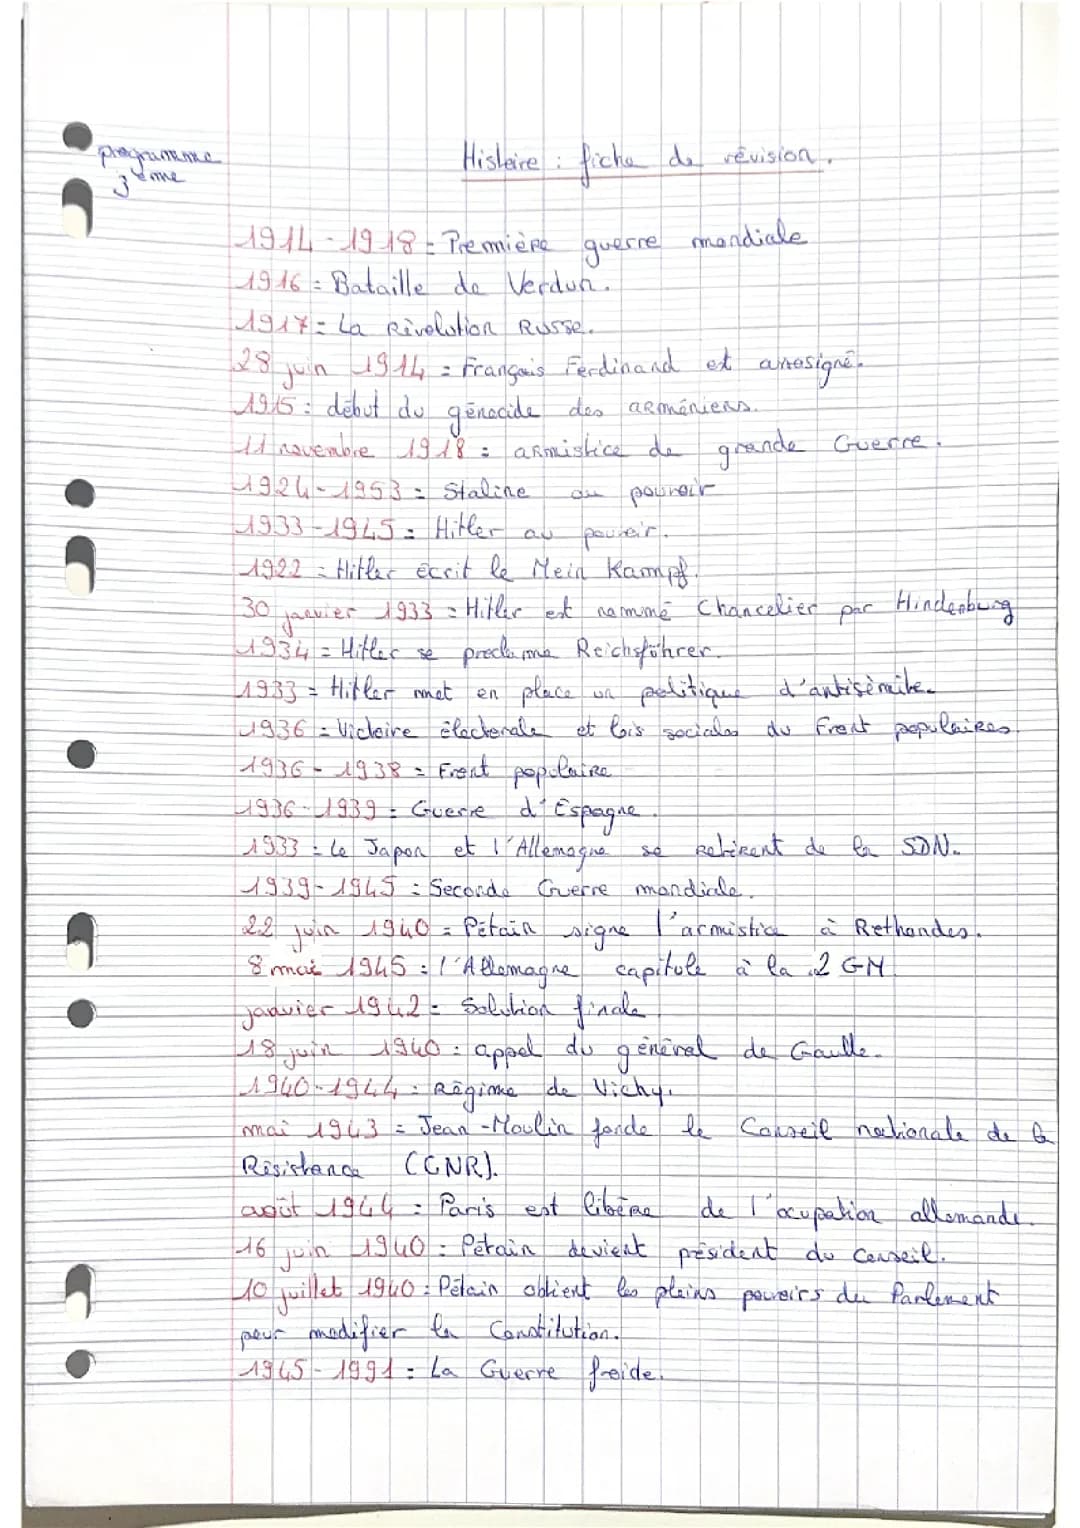 programme
3ème
Histoire : fiche de révision.
1914-1918 = Première guerre mondiale
1916 = Bataille de Verdun.
1917 = La Révolution Russe.
28 juin 1914 = François Ferdinand et assasigné.
1915 : début du génocide des arméniens.
11 novembre 1918 : armistice de grande Guerre.
1924-1953 = Staline au pouvoir
1933-1945 = Hitler au pouvoir.
1922 = Hitler écrit le Mein Kampf.
30 janvier 1933 = Hitler est nommé Chancelier par Hindenburg
1934 = Hitler se proclame Reichsführer.
1933 = Hitler met en place un politique d'antisémite.
1936 = Victoire électorale et lois sociales du Front populaires.
1936-1938 = Front populaire
1936-1939 = Guerre d'Espagne.
1933 : Le Japon et l'Allemagne se retirent de la SDN.
1939-1945 : Seconde Guerre mondiale.
22 juin 1940 = Pétain signe l'armistice à Rethondes.
8 mai 1945 : l'Allemagne capitule à la 2 GM
janvier 1942 = Solution finale
18 juin 1940 : appel du général de Gaulle.
1940-1944 : Régime de Vichy.
mai 1943 = Jean-Moulin fonde le Conseil nationale de la
Résistance (CNR).
août 1944 : Paris est libérée de l'ocupation allemande.
16 juin 1940 : Pétain devient président du Conseil.
10 juillet 1940 : Pétain obtient les pleins pouvoirs du Parlement
pour modifier la Constitution.
1945-1991 : La Guerre froide.